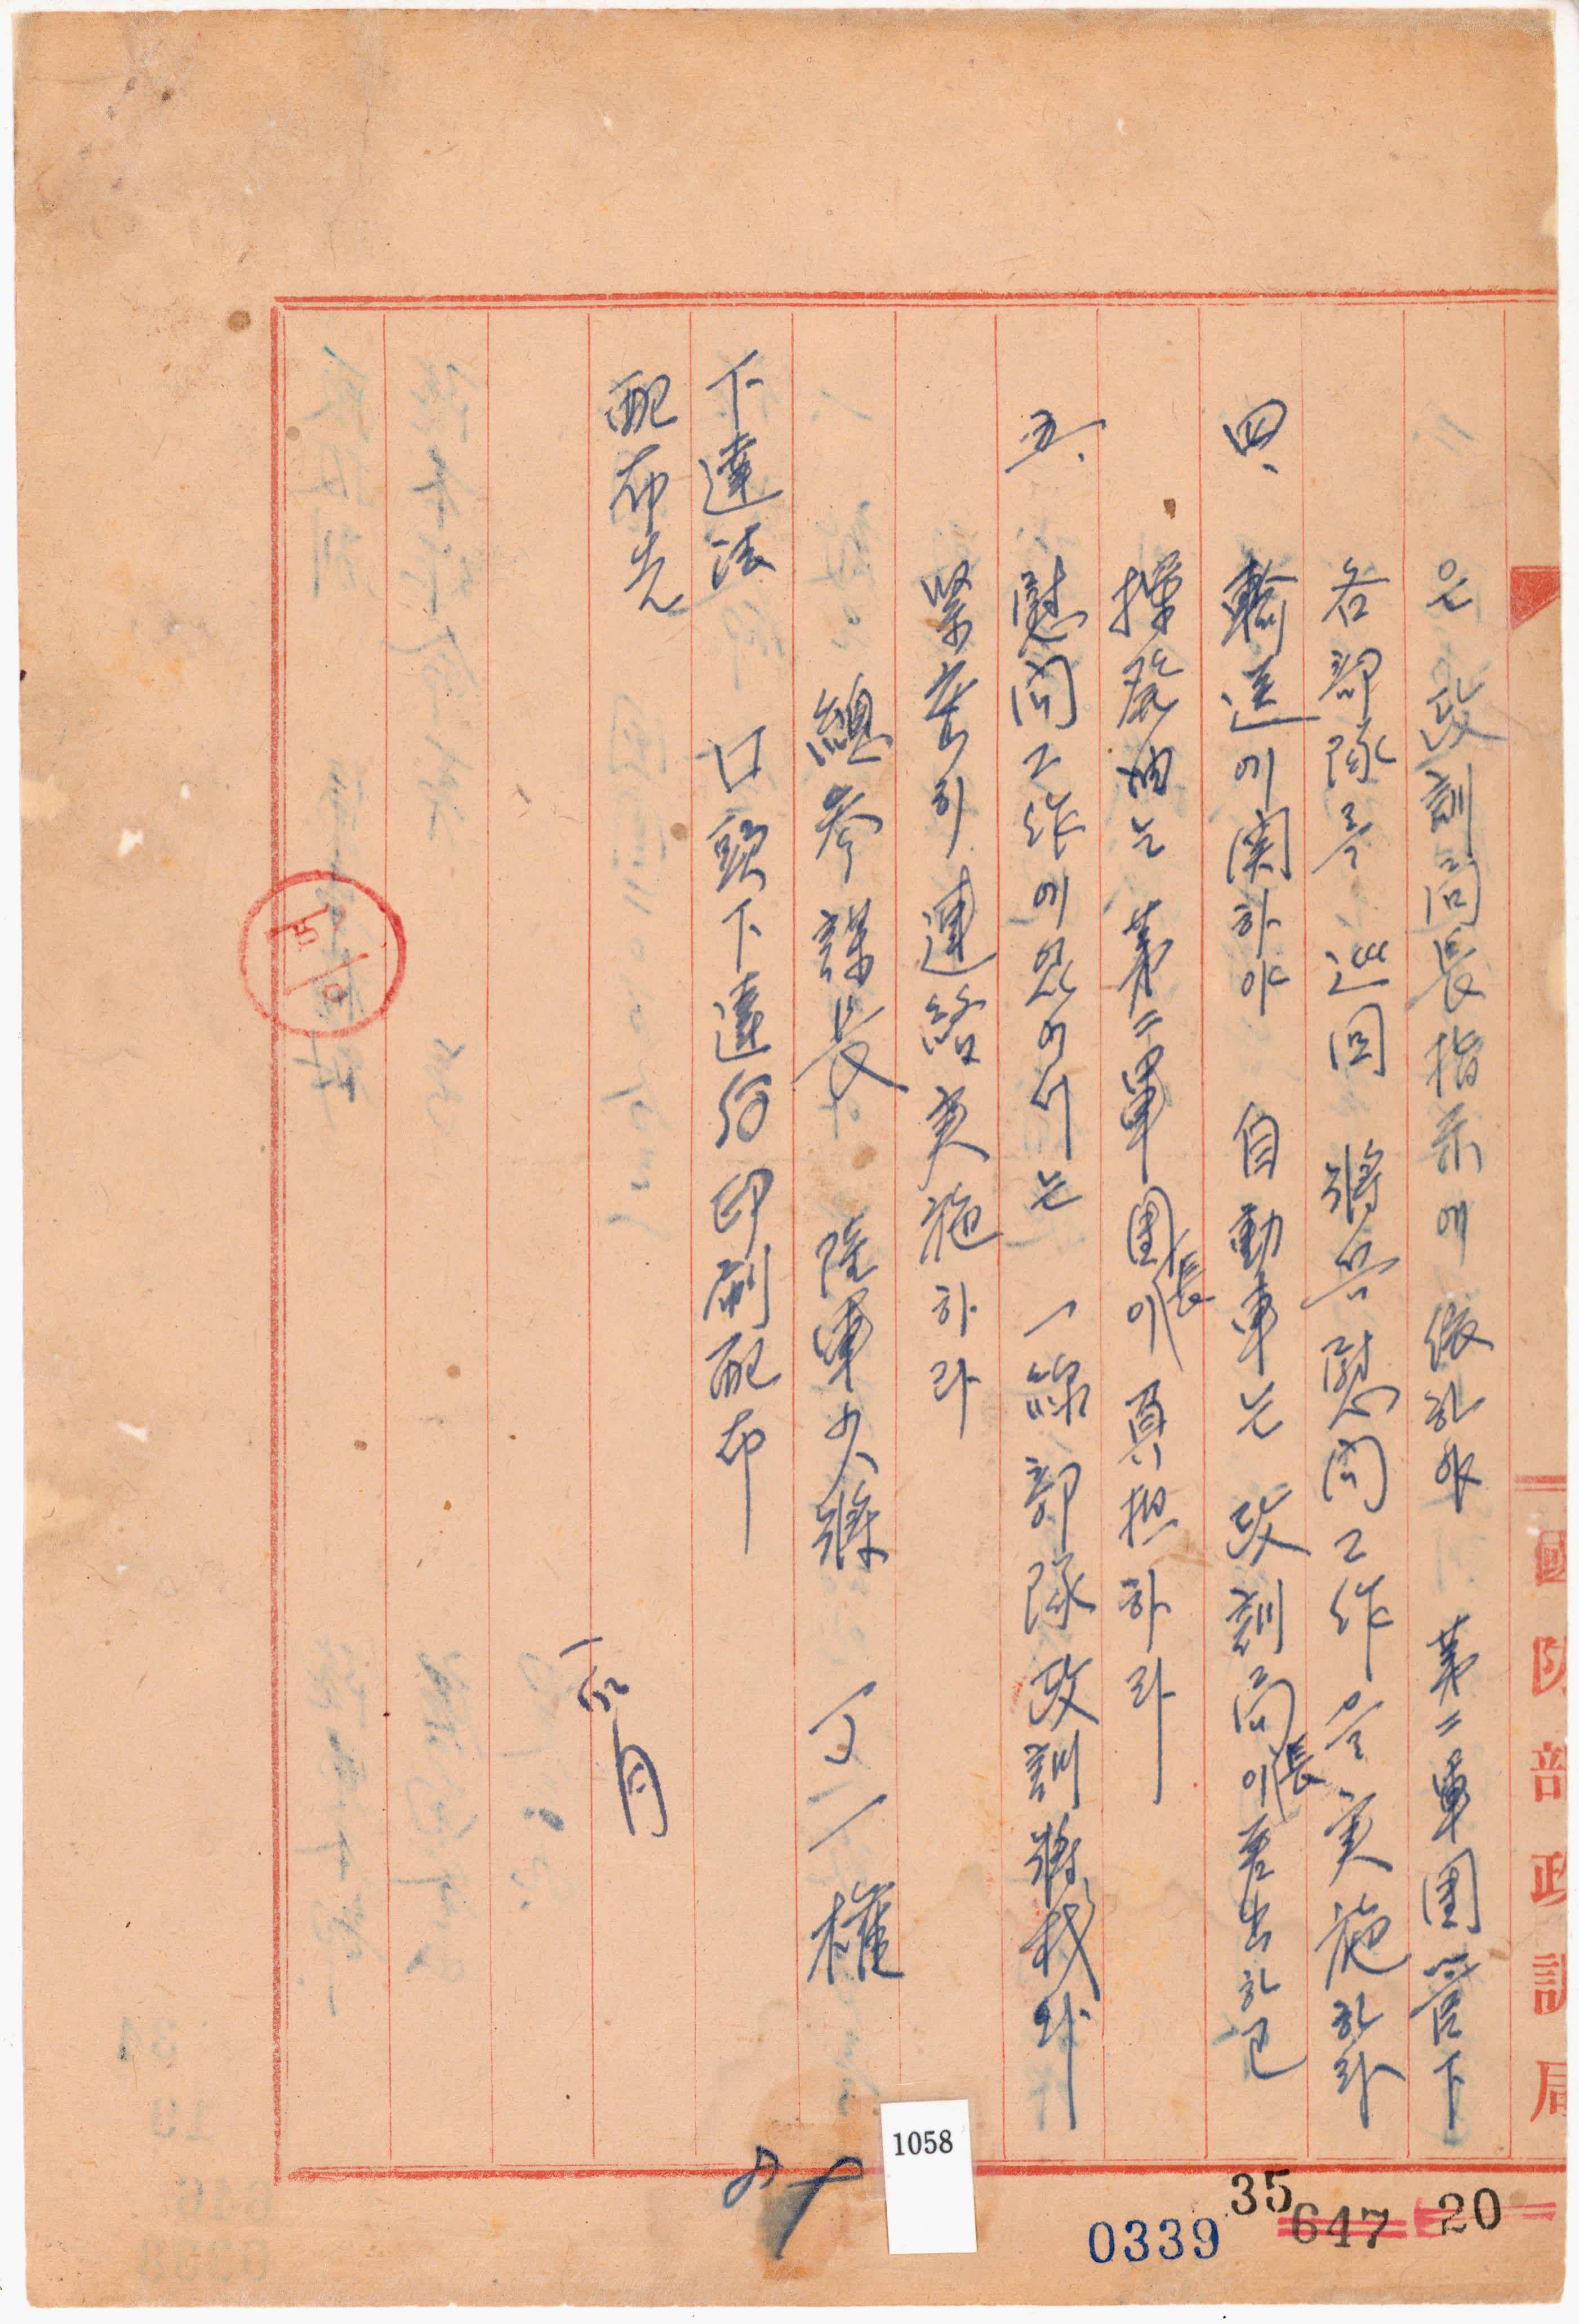 은 政訓局長指示에 依하야 第二軍團管下
各部隊를 巡回 將兵慰問工作을 実施하라
四、輸送에 関하야 自動車는 政訓局長이 差出하고
揮発油는 第二軍團長이 負担하라
五、慰問工作에 있어서는 一線部隊政訓將校와
緊密히 連絡実施하라
總參謀長 陸軍少將 丁一權
下達法 口頭下達後印刷配布
配布先
國防部政訓局
1058
0339
35
647
20